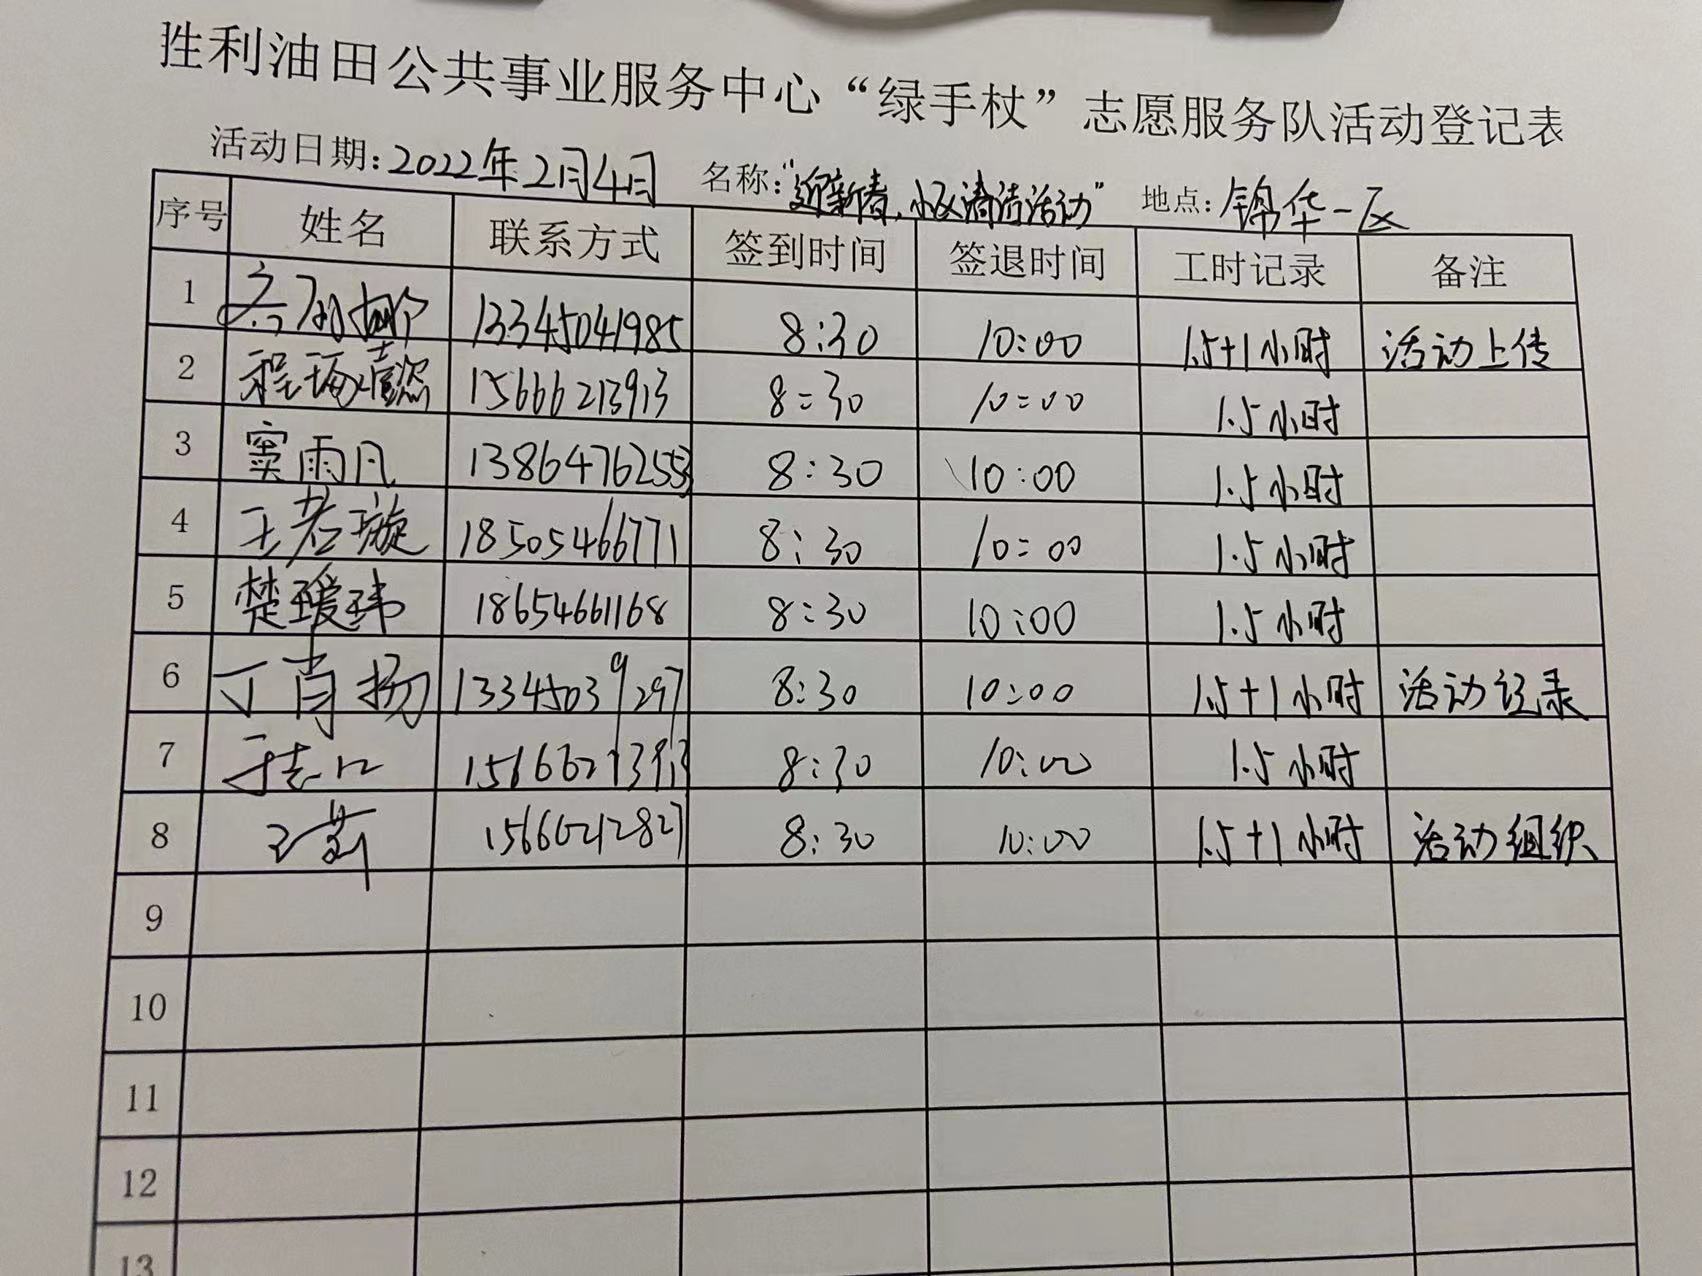 胜利油田公共事业服务中心“绿手杖”志愿服务队活动登记表
活动日期:2022年2月4日 名称:“迎新春,小区清洁活动” 地点:锦华一区
序号 姓名 联系方式 签到时间 签退时间 工时记录 备注
1 13345041985 8:30 10:00 1.5+1小时 活动上传
2 程 懿 15666213913 8:30 10:00 1.5小时
3 窦雨凡 13864762553 8:30 10:00 1.5小时
4 王若璇 18505466771 8:30 10:00 1.5小时
5 楚瑷玮 18654661168 8:30 10:00 1.5小时
6 丁肖扬 13345039297 8:30 10:00 1.5+1小时 活动记录
7 15666213913 8:30 10:00 1.5小时
8 王莉 15666212827 8:30 10:00 1.5+1小时 活动组织
9
10
11
12
13